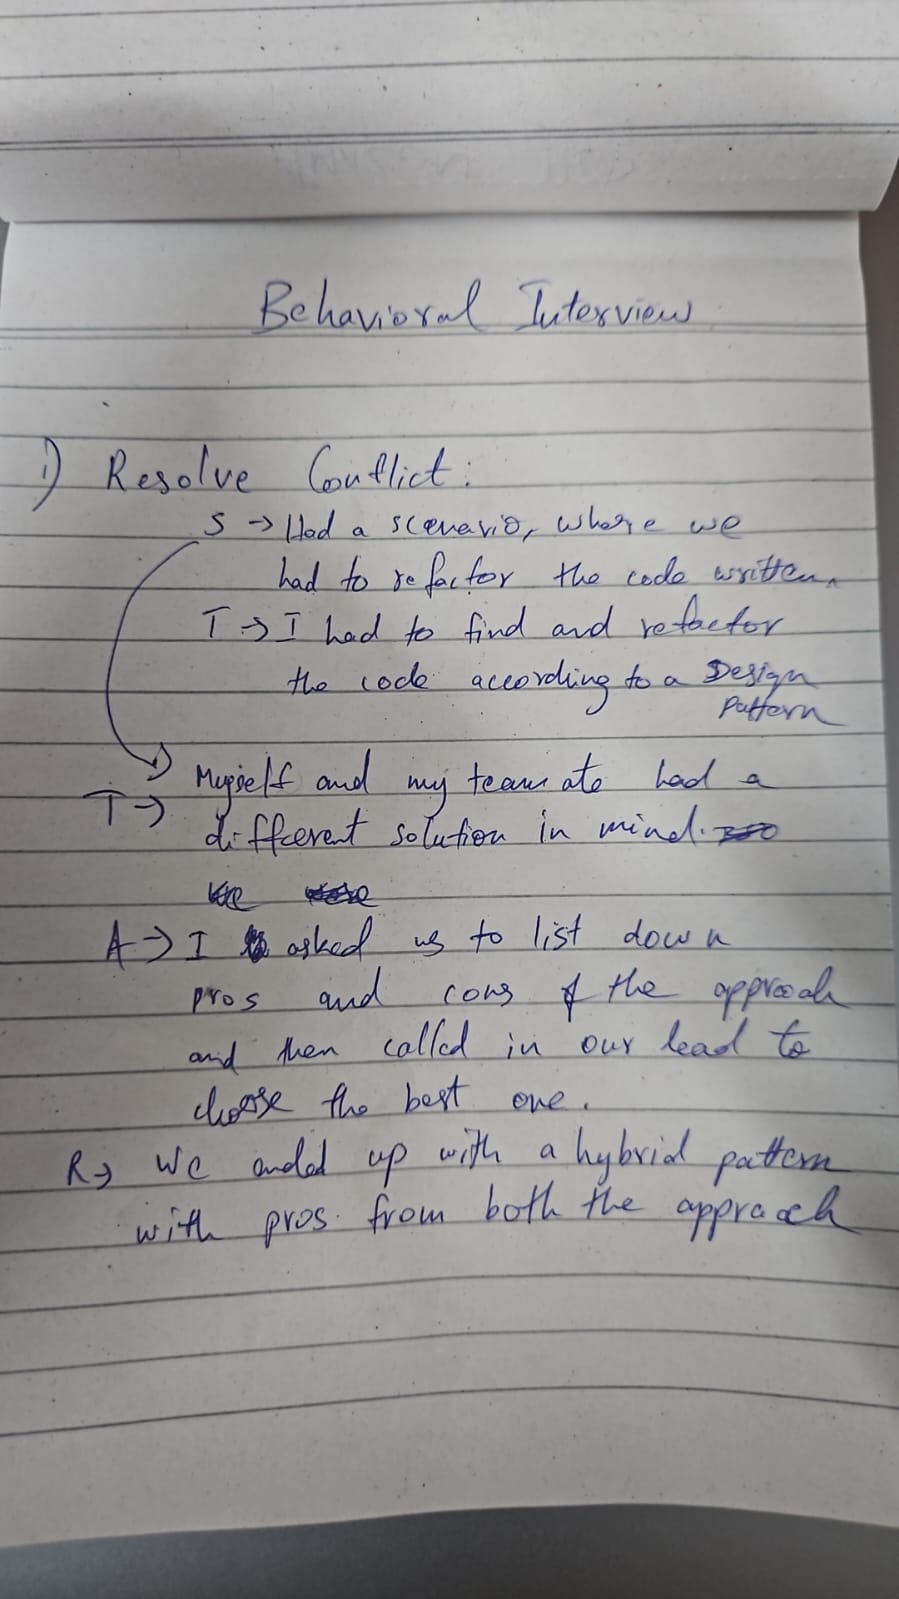 Behavioral Interview
1) Resolve Conflict:
S → Had a scenario, where we
had to refactor the code written.
T → I had to find and refactor
the code according to a Design
Pattern
Myself and my teamate had a
T →
different solution in mind.
We
A → I asked us to list down
pros and cons of the approach
and then called in our lead to
choose the best one.
R → We ended up with a hybrid pattern
with pros from both the appraoch